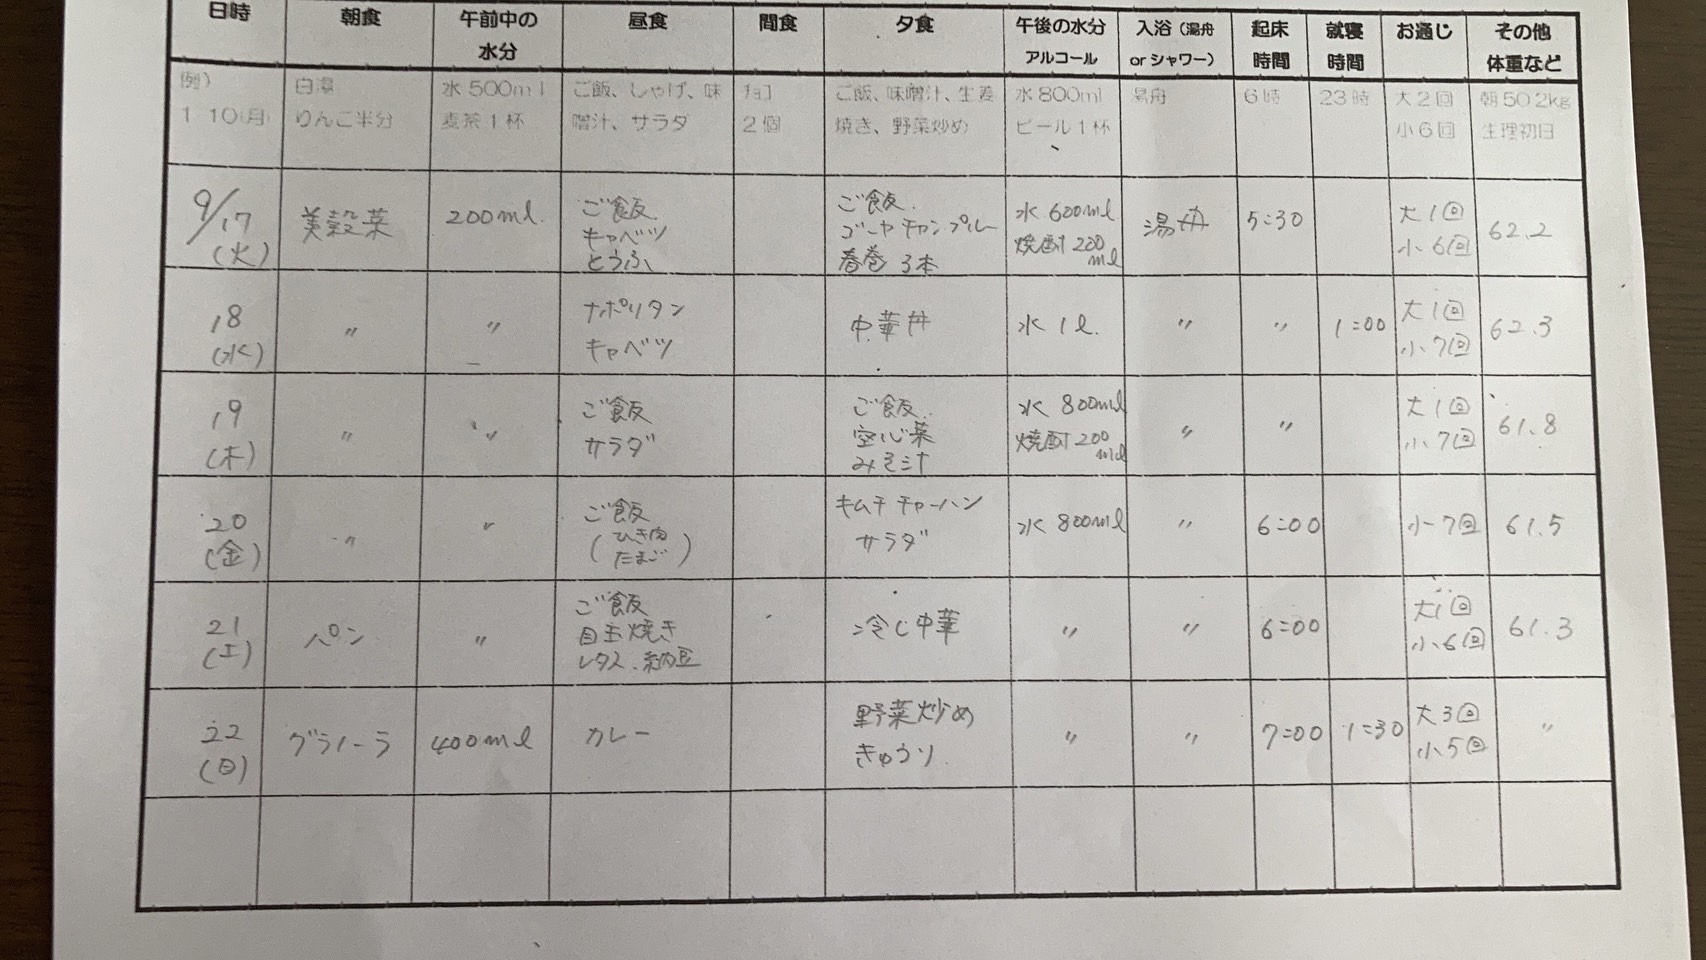 日時 朝食 午前中の水分 昼食 間食 夕食 午後の水分アルコール 入浴(湯舟orシャワー) 起床時間 就寝時間 お通じ その他体重など
例) 1 10(月) 白湯 りんご半分 水500ml 麦茶1杯 ご飯、しゃけ、味噌汁、サラダ チョコ2個 ご飯、味噌汁、生姜焼き、野菜炒め 水800ml ビール1杯 湯舟 6時 23時 大2回 小6回 朝50.2kg 生理初日
9/17(火) 美穀菜 200ml. ご飯. キャベツ とうふ ご飯. ゴーヤチャンプルー 春巻3本 水600ml 焼酎200ml 湯舟 5:30 大1回 小6回 62.2
18(水) 〃 〃 ナポリタン キャベツ 中華丼 水1l. 〃 〃 1:00 大1回 小7回 62.3
19(木) 〃 〃 ご飯 サラダ ご飯. 空心菜 みそ汁 水800ml 焼酎200ml 〃 〃 大1回 小7回 61.8
20(金) 〃 〃 ご飯(ひき肉 たまご) キムチチャーハン サラダ 水800ml 〃 6:00 小7回 61.5
21(土) パン 〃 ご飯 目玉焼き レタス.納豆 冷し中華 〃 〃 6:00 大1回 小6回 61.3
22(日) グラノーラ 400ml カレー 野菜炒め きゅうり 〃 〃 7:00 1:30 大3回 小5回 〃